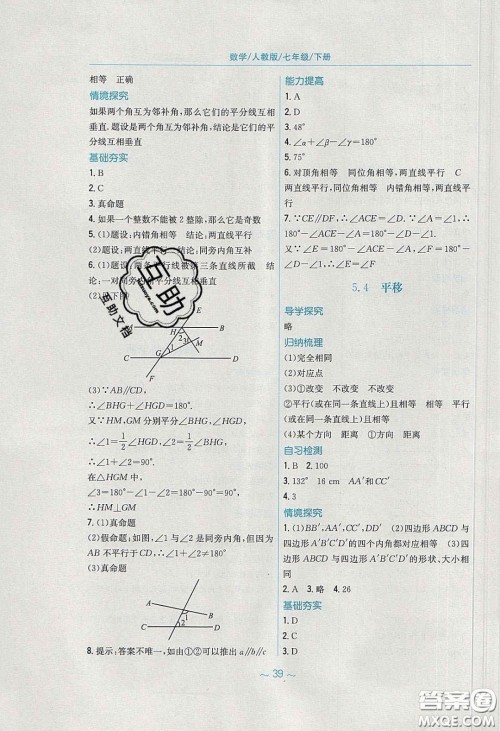 数学/人教版/七年级/下册
相等　正确
情境探究
如果两个角互为邻补角,那么它们的平分线互相
垂直.题设是两个角互为邻补角,结论是它们的平
分线互相垂直
基础夯实
1. B
2. C
3. 真命题
4. 如果一个整数不能被2整除,那么它是奇数
5. (1)题设:内错角相等　结论:两直线平行
(2)题设:两直线平行　结论:同旁内角互补
(3)题设:两条平行线被第三条直线所截　结
论:一对同旁内角
A H B
2 3
1 M
C G D
F
(3)∵AB//CD,
∴∠BHG+∠HGD=180°.
又∵HM,GM分别平分∠BHG,∠HGD,
∴∠1=1/2∠HGD,∠2=1/2∠BHG,
∴∠1+∠2=90°.
在△HGM中,
∠3=180°-∠1-∠2=90°,
∴HM⊥GM
7. (1)真命题
(2)假命题;如图,∠1与∠2是同旁内角,但因为
AB不平行于CD,故∠1+∠2≠180°
(3)真命题
A B
1
2
C D
8. 提示:答案不唯一,如由①②可以推出a//b//c
能力提高
1. A
2. D
3. 48°
4. ∠α+∠β-∠γ=180°
5. 75°
6. 对顶角相等　同位角相等,两直线平行　C
两直线平行,同位角相等　内错角相等,两直线
平行
7. ∵CE//DF,∴∠ACE=∠D.∵∠A=∠1,∴
180°-∠ACE-∠A=180°-∠D-∠1.
又∵∠E=180°-∠ACE-∠A,∠F=180°-∠D-
∠1,∴∠E=∠F
5.4　平移
导学探究
略
归纳梳理
(1)完全相同
(2)对应点
(3)①改变　不改变　不改变
②平行(或在同一条直线上)且相等　相等　平行
(或在同一条直线上)且相等
(4)某个方向　距离　①方向　距离
自习检测
1. B　2. 100
3. 132°　16 cm　AA′和CC′
4. 3
情境探究
1. (1)BB′,AA′,CC′,DD′　(2)四边形ABCD与
四边形A′B′C′D′的四个内角都对应相等　(3)四
边形ABCD与四边形A′B′C′D′的形状、大小相
同
2. A　3. 略　4. 26
基础夯实
1. D
2. D
3. C
～ 39 ～
互助
互助文档
答案圈
MXQE.COM